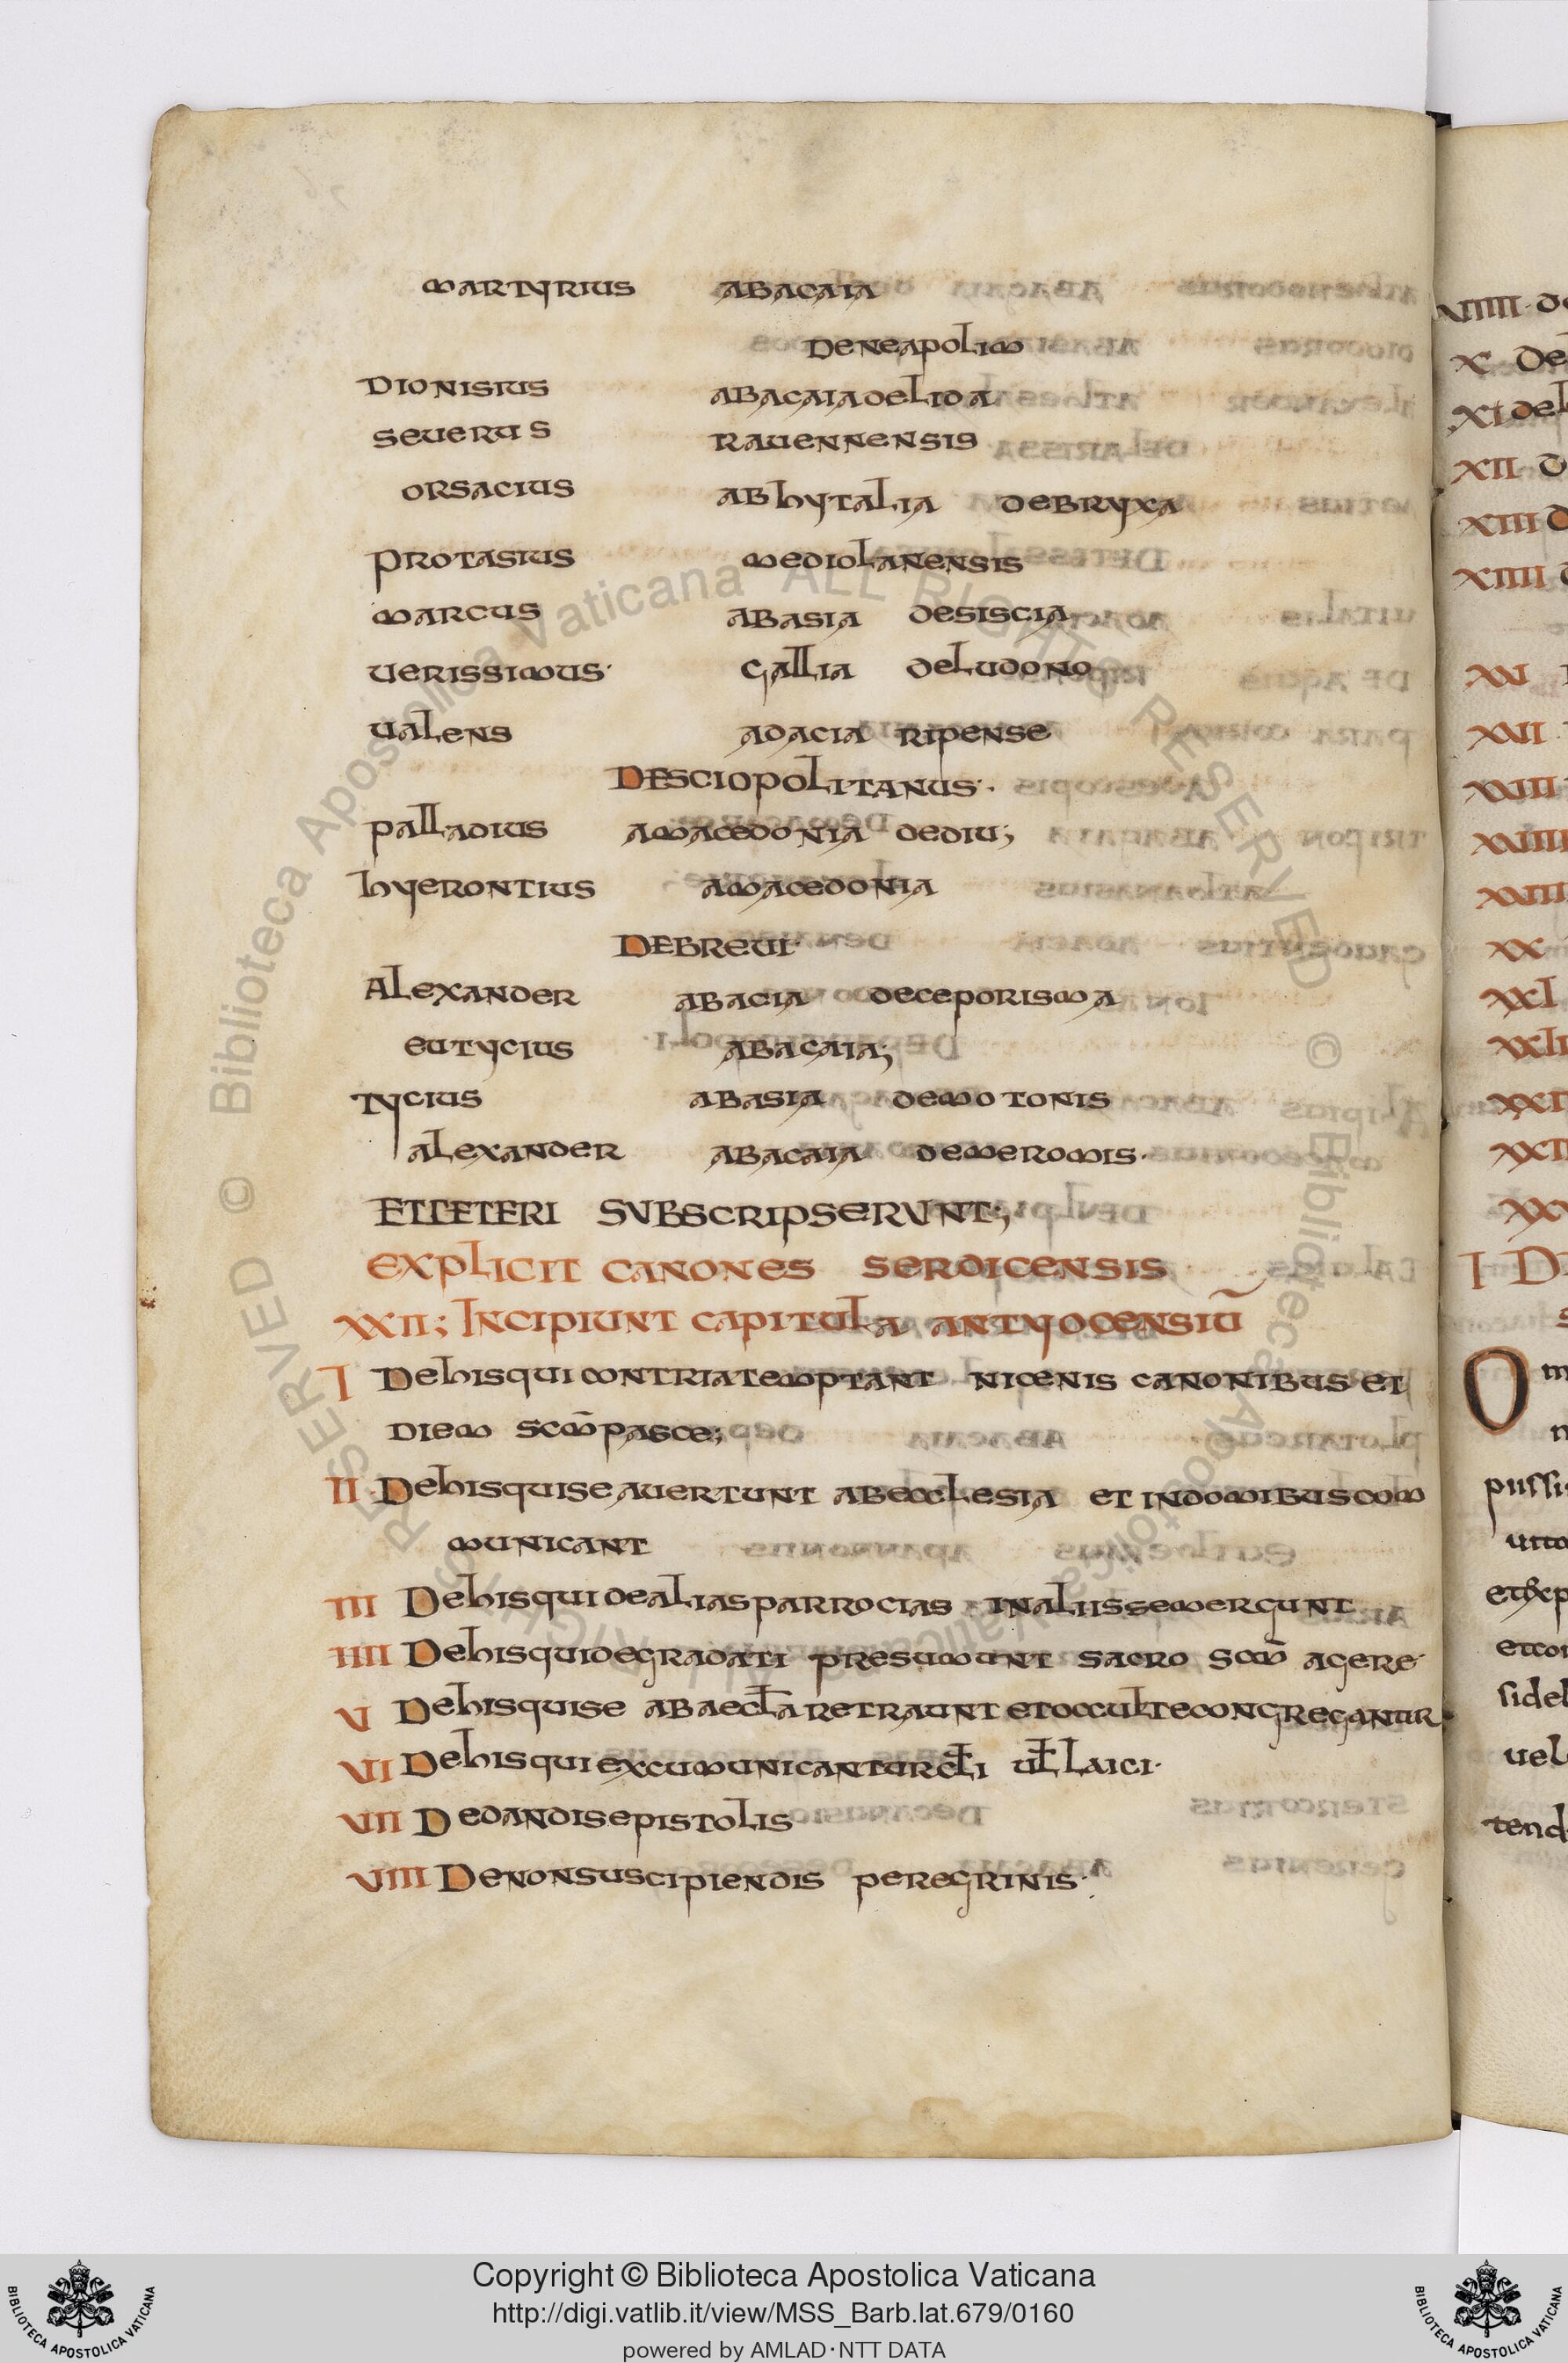 martyrius abacaia
deneapolim
dionisius abacaiadelida
seuerus rauennensis
orsacius abhytalia debryxa
protasius mediolanensis
marcus abasia desiscia
uerissimus· gallia deludono
ualens adacia ripense
desciopolitanus·.
palladius amacedonia dediu;
hyerontius amacedonia
debreui·
Alexander abacia deceporisma
eutycius abacaia;
Tycius abasia demotonis
alexander abacaia demeromis·
ETCETERI SVBSCRIPSERVNT;
EXPLICIT CANONES SERDICENSIS
XXII; INCIPIUNT CAPITULA ANTYOCENSIŪ
I Dehisqui contriatemptant nicenis canonibus et
diem scm̄ pasce;
II Dehisquiseauertunt abecclesia et indomibuscom
municant
III Dehisquidealiasparrocias inaliissemergunt
IIII Dehisquidegradati presumunt sacro scm̄ agere·
V Dehisquise abaecl̄a retraunt etoccultecongregantur
VI Dehisquiexcumunicanturcl̄i ul̄ laici·
VII Dedandisepistolis
VIII Denonsuscipiendis peregrinis·
VIIII· de
X De
XI del
XII d
XIII d
XIIII d
XX
XXI
I D
O m
pussi
etcon
fidel
uel
tend
Copyright © Biblioteca Apostolica Vaticana
http://digi.vatlib.it/view/MSS_Barb.lat.679/0160
powered by AMLAD·NTT DATA
BIBLIOTECA APOSTOLICA VATICANA
BIBLIOTECA APOSTOLICA VATICANA
© Biblioteca Apostolica Vaticana ALL RIGHTS RESERVED
© Biblioteca Apostolica Vaticana ALL RIGHTS RESERVED